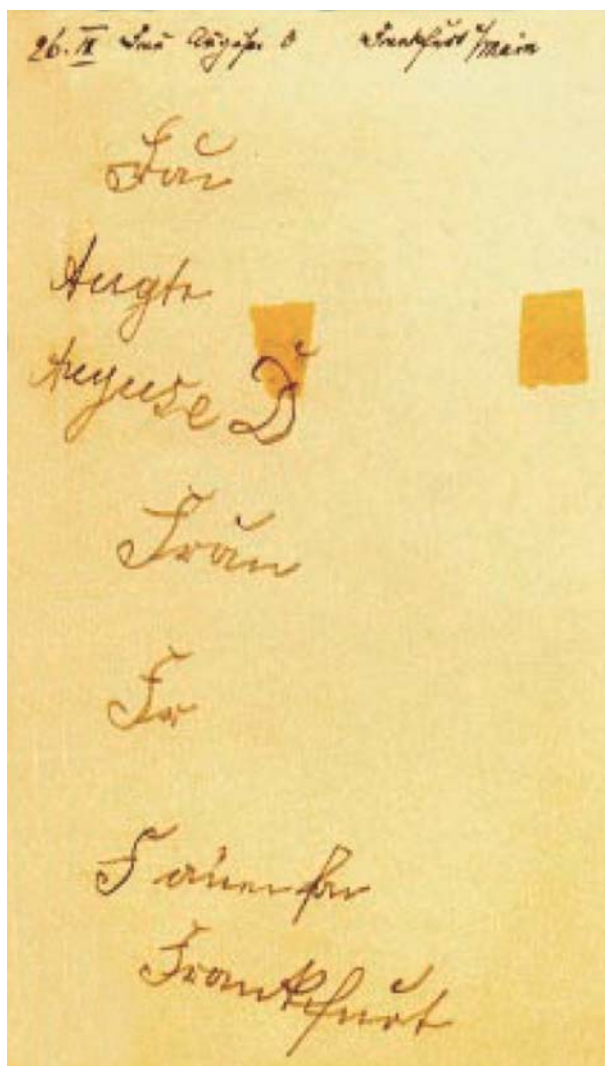 26. IX Frau Auguse D Frankfurt a/Main
Frau
Augte
Auguse D
Fraun
Fr
Frankfurt